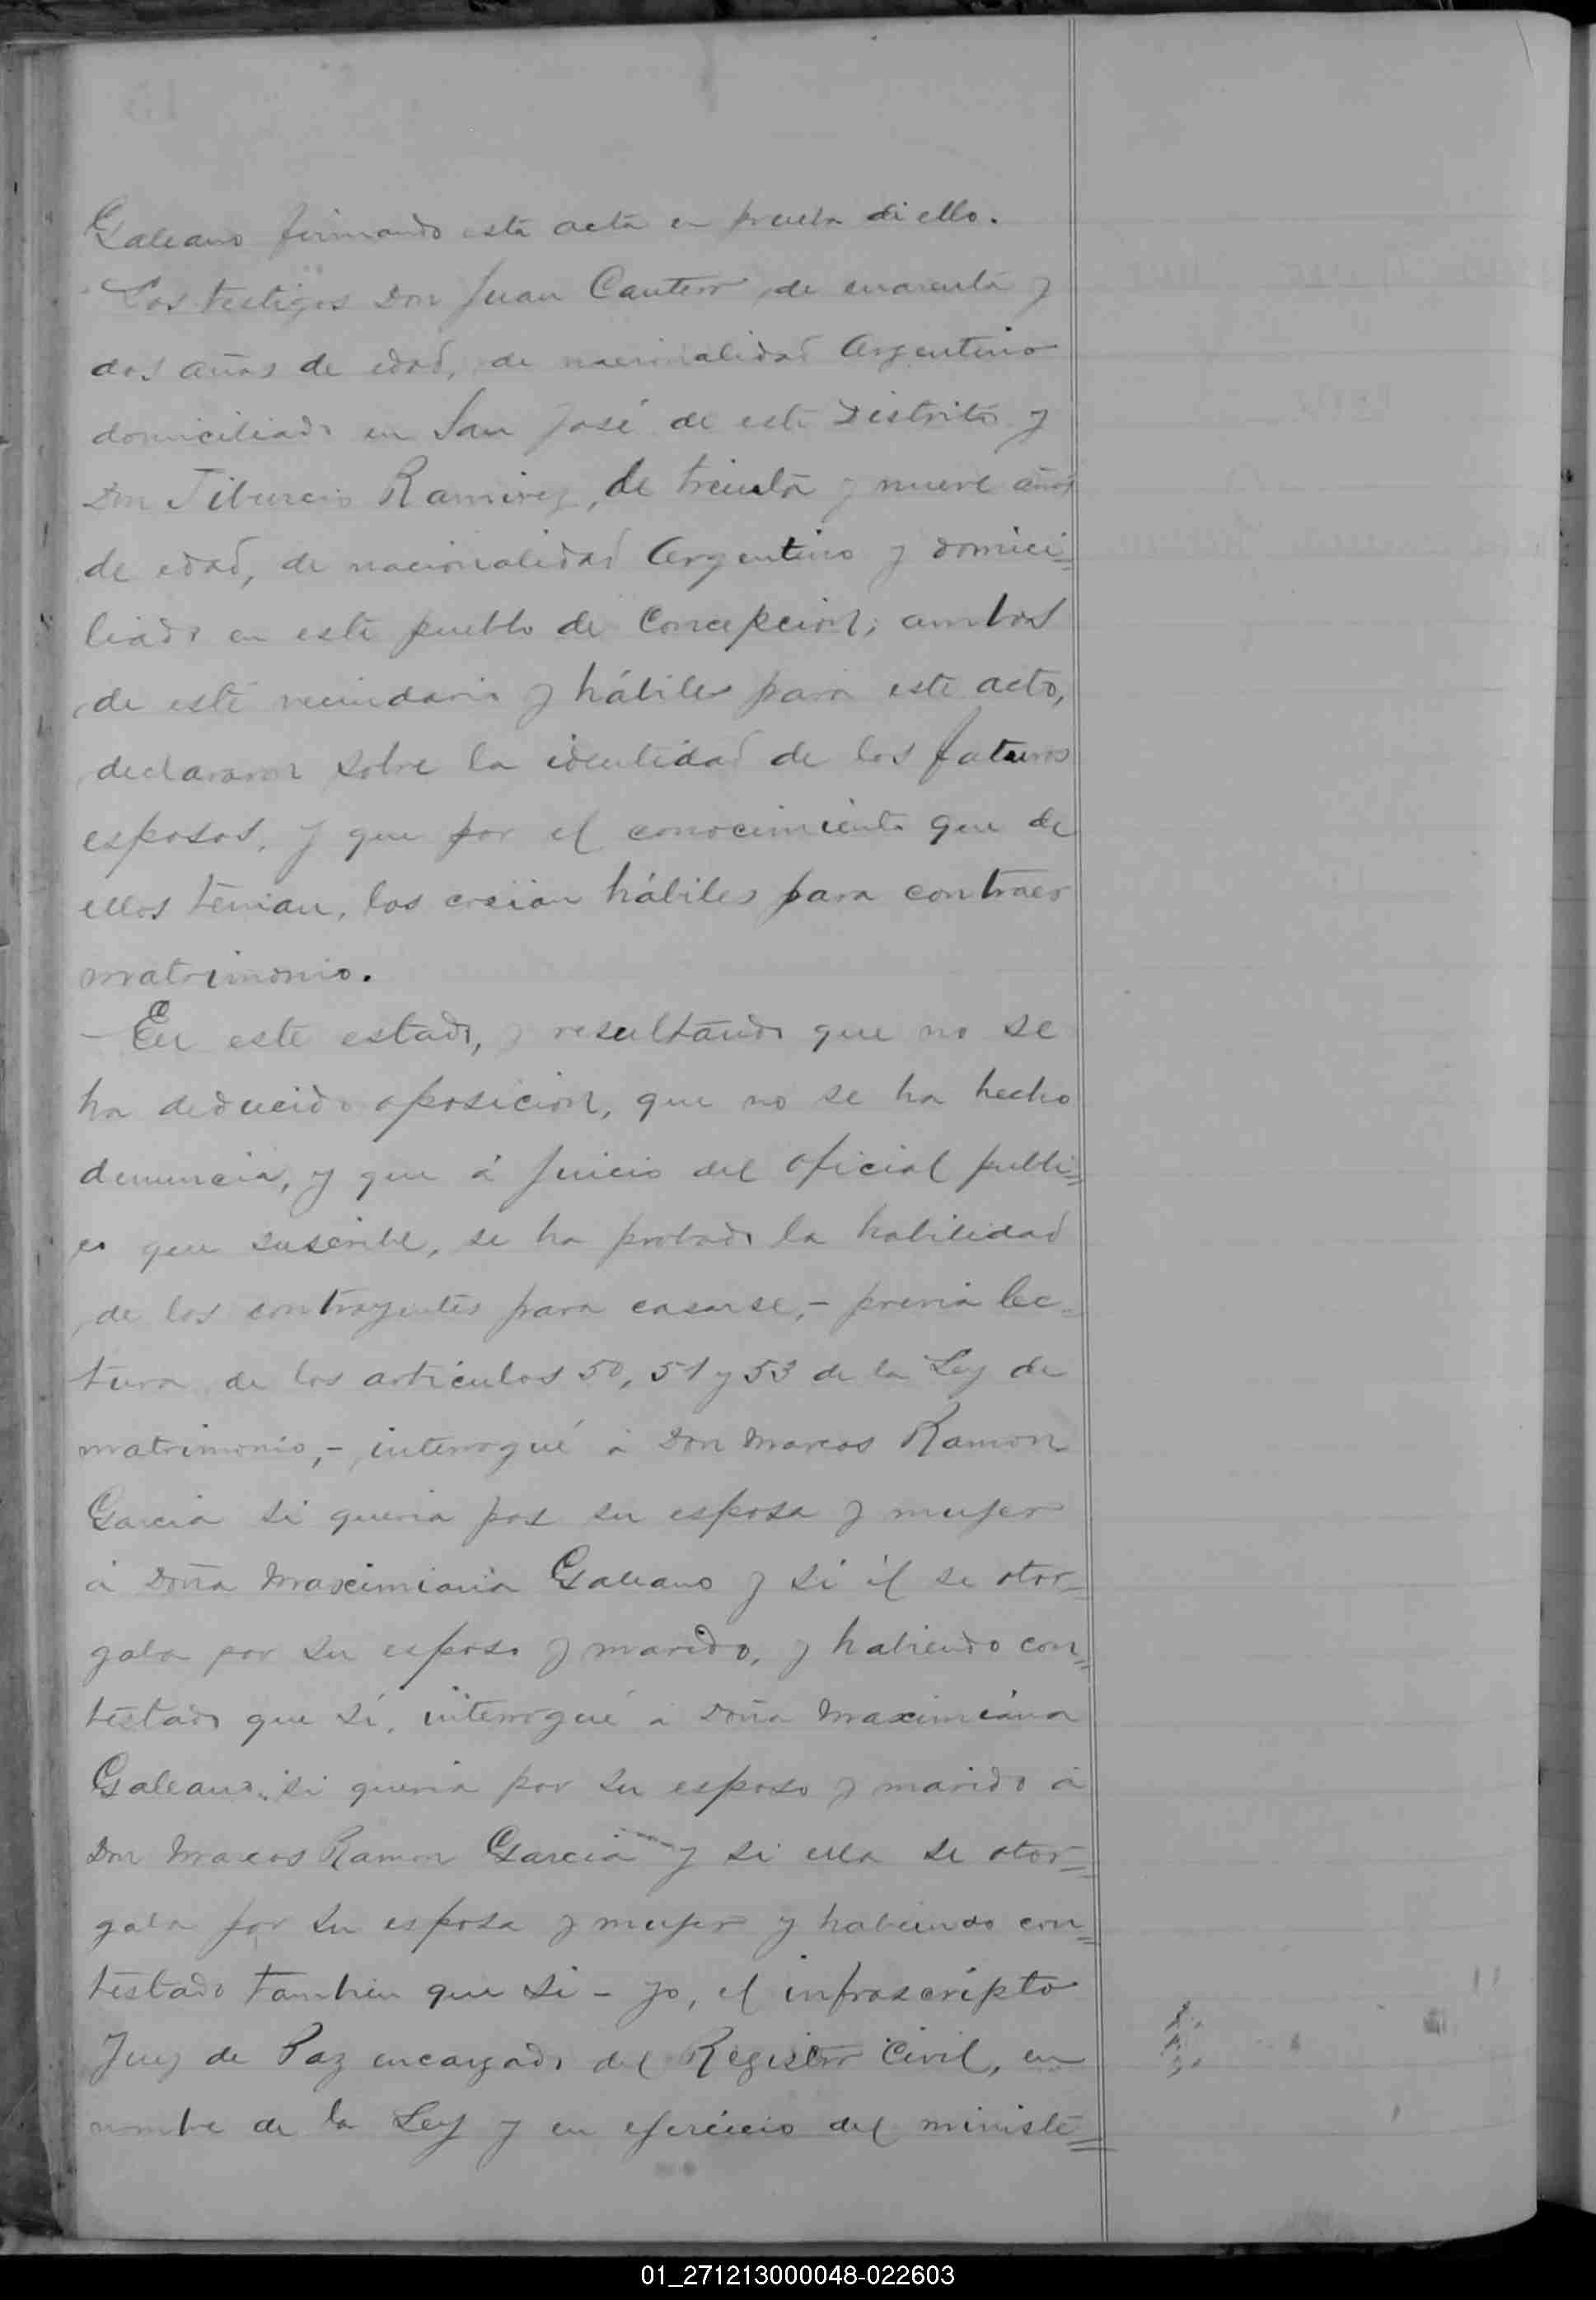 Galeano firmando esta acta en prueba di ello.
Los testigos Don Juan Cantero, de cuarenta y
dos años de edad, de nacionalidad Argentino
domiciliado en San José de este Distrito y
Don Tiburcio Ramirez, de treinta y nueve años
de edad, de nacionalidad Argentino y domici=
liado en este pueblo de Concepcion; ambos
de este vecindario y hábiles para este acto,
declararon sobre la identidad de los futuros
esposos, y que por el conocimiento que de
ellos tenian, los creian hábiles para contraer
matrimonio.
— En este estado, y resultando que no se
ha deducido oposicion, que no se ha hecho
denuncia, y que á juicio del oficial publi=
co que suscribe, se ha probado la habilidad
de los contrayentes para casarse, – previa lec=
tura de los artículos 50, 51 y 53 de la Ley de
matrimonio, – interrogué á Don Marcos Ramon
Garcia si queria por su esposa y mujer
á Doña Maximiana Galeano y si él se otor=
gaba por su esposo y marido, y habiendo con=
testado que sí, interrogué a Doña Maximiana
Galeano, si queria por su esposo y marido á
Don Marcos Ramon Garcia y si ella se otor=
gaba por su esposa y mujer y habiendo con=
testado tambien que si – yo, el infrascripto
Juez de Paz encargado del Registro Civil, en
nombre de la Ley y en ejercicio del ministe=
01_271213000048-022603